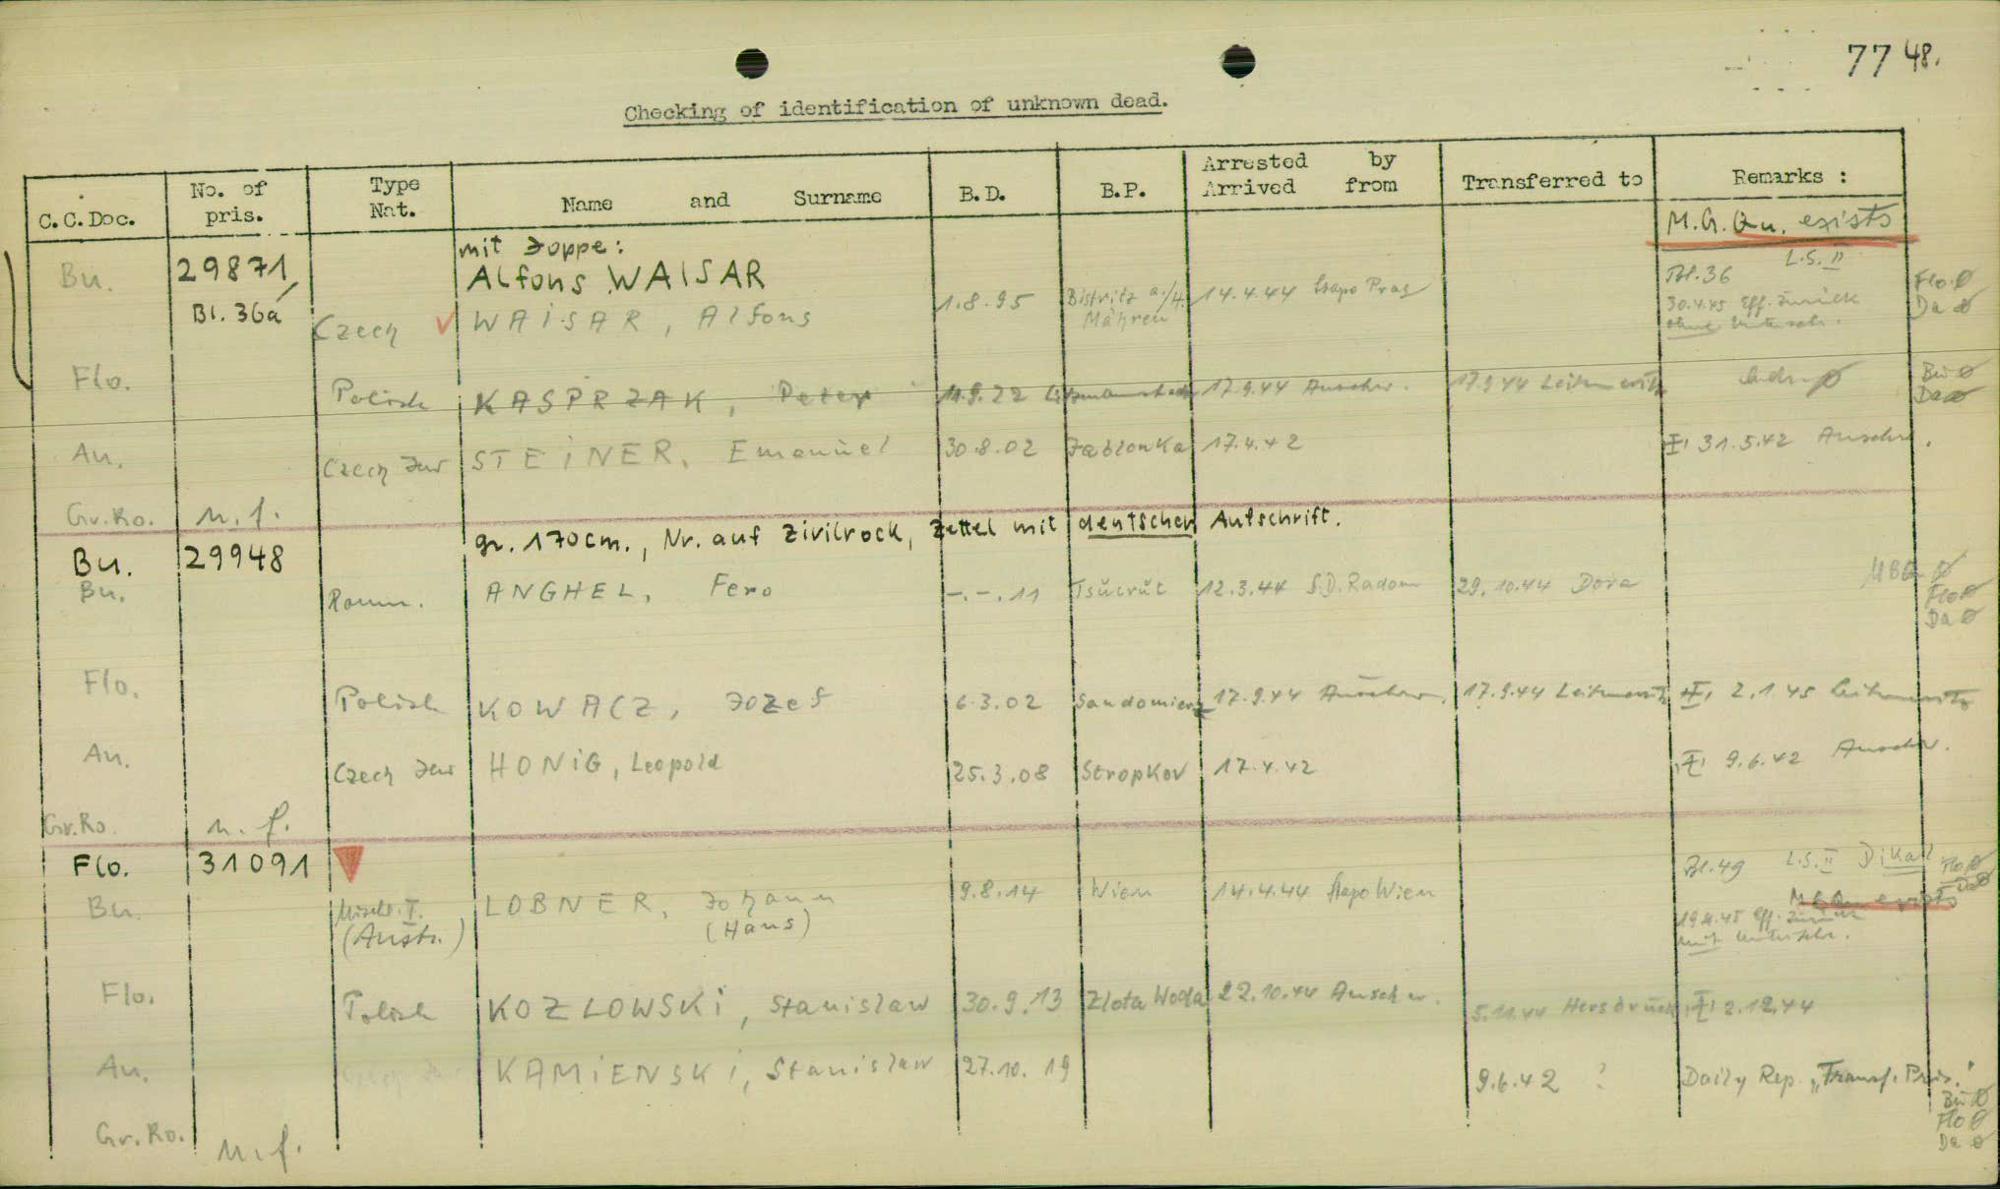 77 48.
Checking of identification of unknown dead.
C.C.Doc. No. of pris. Type Nat. Name and Surname B.D. B.P. Arrested by Arrived from Transferred to Remarks :
M.G.Qu. exists
mit Joppe:
Bu. 29871 Alfons WAISAR L.S. II
Bl. 36a Czech WAISAR, Alfons 1.8.95 Bistritz a./H. Mähren 14.4.44 Stapo Prag Bl. 36 Flo. Ø
30.4.45 Eff. zurück Da Ø
ohne Untersch.
Flo. Polish KASPRZAK, Peter 22 17.9.44 Auschw. 17.9.44 Leitmeritz Bu Ø
Da Ø
Au. Czech Jew STEINER, Emanuel 30.8.02 Jablonka 17.4.42 31.5.42 Auschw.
Gr.Ro. n. f.
gr. 170cm., Nr. auf Zivilrock, Zettel mit deutscher Aufschrift.
Bu. 29948
Bu. Roum. ANGHEL, Fero -.-.11 12.3.44 S.D. Radom 29.10.44 Dora Flo Ø
Da Ø
Flo. Polish KOWACZ, Jozef 6.3.02 Sandomierz 17.9.44 Auschw. 17.9.44 Leitmeritz 2.1.45 Leitmeritz
Au. Czech Jew HONIG, Leopold 25.3.08 Stropkov 17.4.42 9.6.42 Auschw.
Gr.Ro. n. f.
Flo. 31091 Bl. 49 L.S. II Flo Ø
Bu. Mischl. I. (Austr.) LOBNER, Johann (Hans) 9.8.14 Wien 14.4.44 Stapo Wien Da Ø
M.G.Qu. exists
19.4.45 Eff. zurück
mit Unterschr.
Flo. Polish KOZLOWSKI, Stanislaw 30.9.13 Zlota Woda 22.10.44 Auschw. 5.11.44 Hersbruck 2.12.44
Au. KAMIENSKI, Stanislaw 27.10.19 9.6.42 ? Daily Rep. „Transf. Pris."
Bu Ø
Flo Ø
Da Ø
Gr.Ro. n. f.